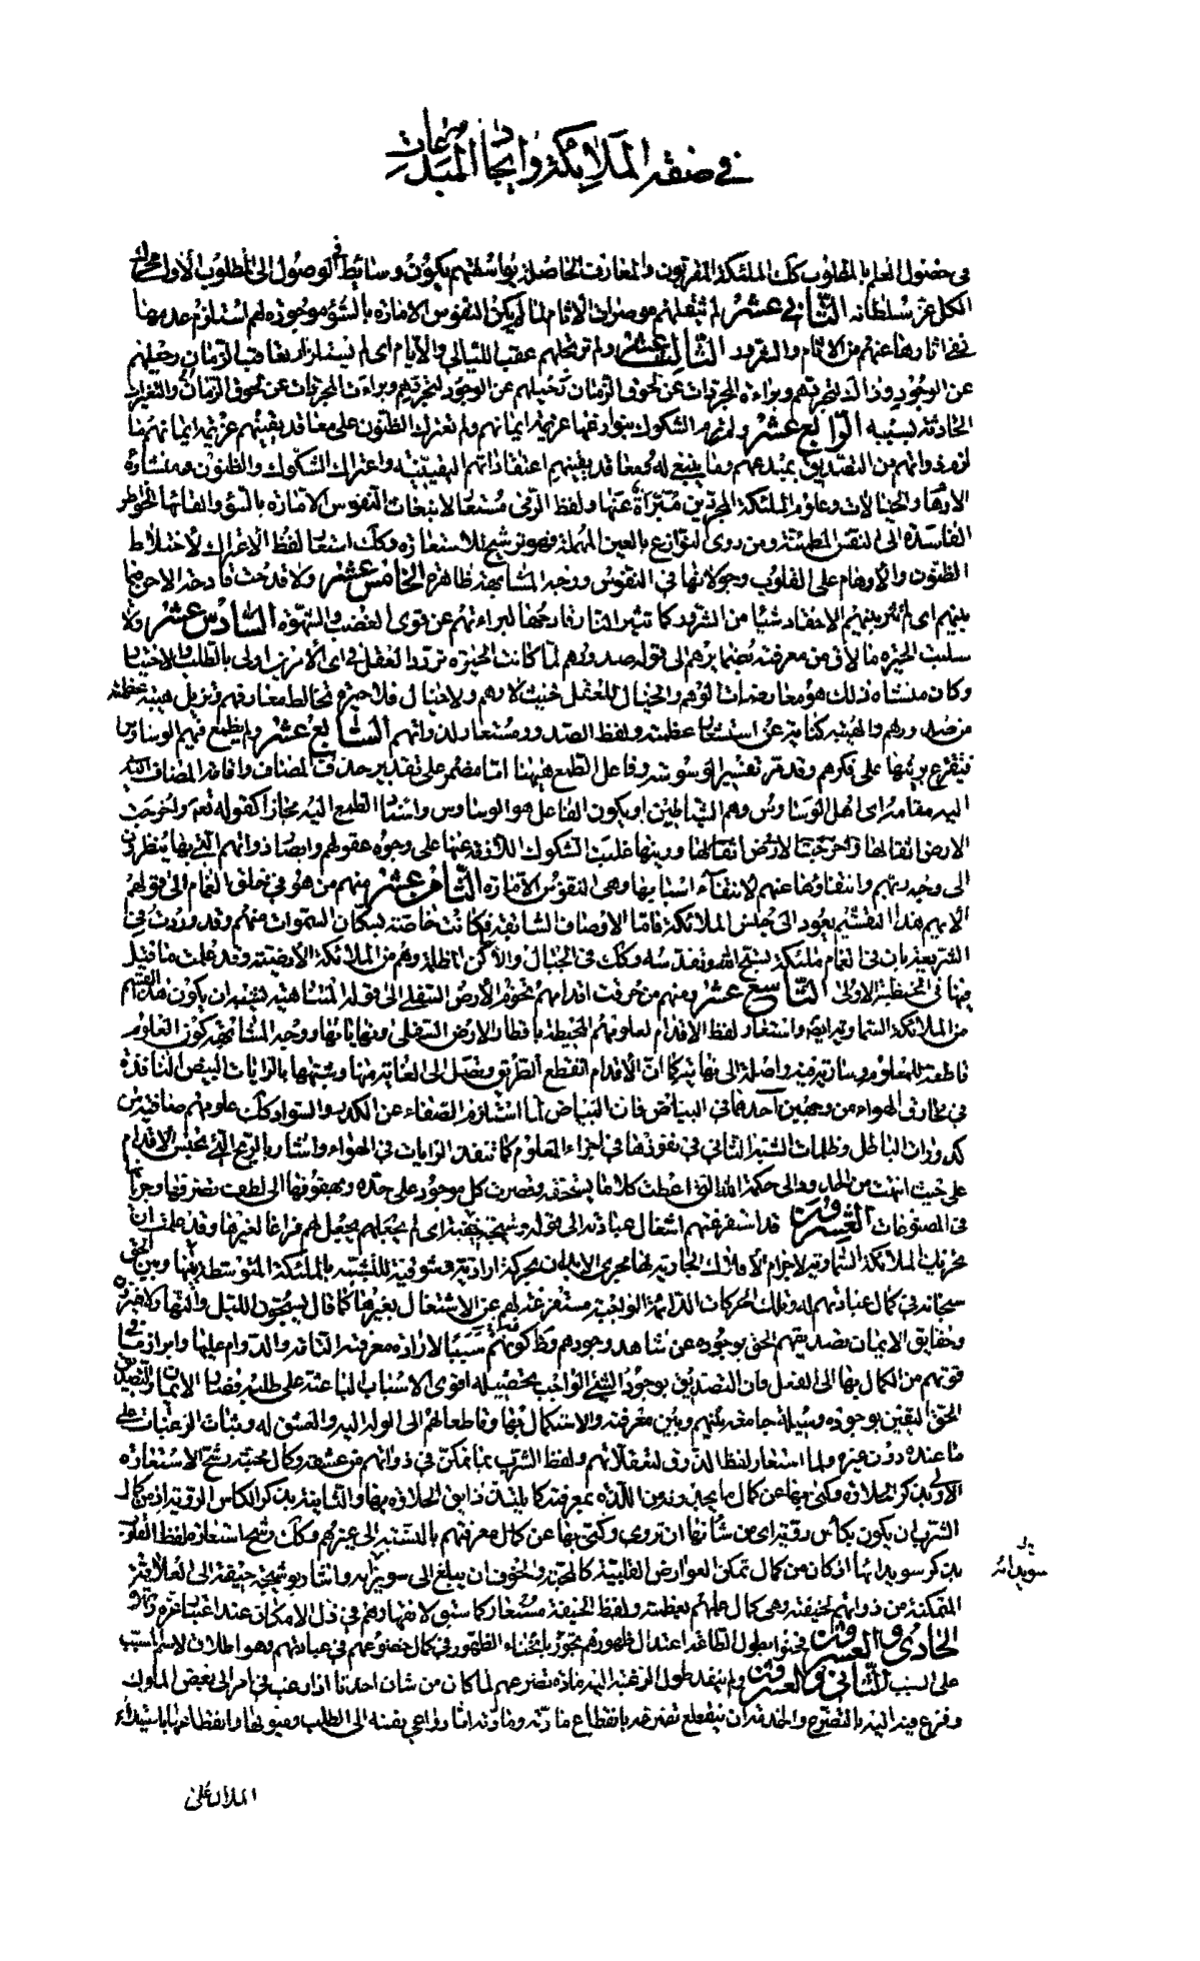 في صفة الملائكة وايجاد المبدعات
في حصول العلم بالمطلوب كك الملئكة المقربون والمعارف الحاصلة بواسطتهم يكون وسائط في الوصول الى المطلوب الأول محرك
الكل عز سلطانه الثاني عشر لم تثقلهم موصرات الآثام لما لم يكن النفوس الامارة بالسوء موجودة لهم استلزم عدمها
نفي اثارها عنهم من الاثام والشرور الثالث عشر ولم ترتحلهم عقب الليالي والأيام اى لم يستلزم تعاقب الزمان رحيلهم
عن الوجود وذلك لتجردهم وبراءة المجردات عن لحوق الزمان والتغيرات
الحادثة بسببه الرابع عشر ولم ترم الشكوك بنوازغها عزيمة ايمانهم ولم تعترك الظنون على معاقد يقينهم عزيمة ايمانهم ما
لزم ذواتهم من التصديق بمبدعهم وما ينبغي له ومعاقد يقينهم اعتقاداتهم اليقينية واعتراك الشكوك والظنون ومنشاؤه
الاوهام والخيالات وعلوم الملئكة المجردين مبرّاة عنها ولفظ الرمي مستعار لانبعاث النفوس الامارة بالسوء والقائها الخواطر
الفاسدة الى النفس المطمئنة ومن روى النوازع بالعين المهملة فهو ترشيح للاستعارة وكك استعار لفظ الاعتراك لاختلاط
الظنون والاوهام على القلوب وجولانها في النفوس ووجه المشابهة ظاهر الخامس عشر ولا قدحت قادحة الاحن فيما
بينهم اى لم تثر بينهم الاحقاد شيئا من الشرور كما تثير النار قادحها لبراءتهم عن قوى الغضب والشهوة السادس عشر ولا
سلبتهم الحيرة ما لاق من معرفته بضمايرهم الى قوله صدورهم لما كانت الحيرة تردد العقل في اى الأمرين اولى بالطلب والاختيار
وكان منشاء ذلك هو معارضات الوهم والخيال للعقل فحيث لا وهم ولا خيال فلا حيرة تخالط معارفهم وتزيل هيبة عظمته
من صدورهم والهيبة كناية عن استشعار عظمته ولفظ الصدور مستعار لذواتهم السابع عشر ولم يطمع فيهم الوساوس
فتقترع برينها على فكرهم وقد مر تفسير الوسوسة وفاعل الطمع ههنا اما مضمر على تقدير حذف المضاف واقامة المضاف
اليه مقامه اى اهل الوساوس وهم الشياطين او يكون الفاعل هو الوساوس واسناد الطمع اليه مجازا كقوله تعم واخرجت
الارض اثقالها ورينها غلبت الشكوك اللازمة عنها على وجوه عقولهم وابصار ذواتهم التي بها ينظرون
الى وجه ربهم وانتفاؤها عنهم لانتفاء اسبابها وهي النفوس الامارة الثامن عشر منهم من هو في خلق الغمام الى قوله
الايهم هذا التقسيم يعود الى جنس الملائكة فاما الاوصاف السابقة فكانت خاصة بسكان السموات منهم وقد وردت في
الشريعة ان في الغمام ملئكة تسبح الله وتقدسه وكك في الجبال والاماكن المظلمة وهم من الملائكة الأرضية وقد علمت ما قيل
فيها في الخطبة الاولى التاسع عشر ومنهم من خرقت اقدامهم تخوم الأرض السفلى الى قوله المتناهية يشبه ان يكون هذا القسم
من الملائكة السماوية ايضا واستعار لفظ الاقدام لعلومهم المحيطة باقطار الارض السفلى ونهاياتها ووجه المشابهة كون العلوم
قاطعة للمعلوم وسارية فيه واصلة الى نهايته كما ان الأقدام تقطع الطريق وتصل الى الغاية منها وشبهها بالرايات البيض النافذة
في مخارق الهواء من وجهين احدهما في البياض فان البياض لما استلزم الصفاء عن الكدر والسواد كك علومهم صافية من
كدورات الباطل وظلمات الشبه الثاني في نفوذها في اجزاء المعلوم كما تنفذ الرايات في الهواء واشار بالريح التي تحبس الاقدام
على حيث انتهت من الحدود الى حكمة الله التي اعطت كلا ما يستحقه وقصرت كل موجود على حده وبهفوفها الى لطف تصرفها وجريانها
في المصنوعات العشرون قد استفرغتهم اشغال عبادته الى قوله وشيجة خيفته اى لم يجعلهم يجعل لهم فراغا لغيرها وقد علمت ان
تحريك الملائكة السماوية لاجرام الأفلاك الجارية لها مجرى الابدان بحركة ارادية وشوقية للتشبه بالملئكة المتوسطة بينها وبين الحق
سبحانه في كمال عبادتهم له وتلك الحركات الدائمة الواجبة مستفرغة لهم عن الاشتغال بغيرها كما قال يسبحون الليل والنهار لا يفترون
وحقايق الايمان تصديقهم الحق بوجوده عن شاهد وجودهم وظ كونهم سببا لارادة معرفته التامة والدوام عليها وابراز ما في
قوتهم من الكمال بها الى الفعل فان التصديق بوجود الشيء الواجب تحصيله اقوى الاسباب الباعثة على طلبه فصار الايمان والتصديق
الحق اليقين بوجوده وسيلة جامعة بينهم وبين معرفته والاستكمال بها وقاطعا لهم الى الوله اليه والعشق له وثبات الرغبات على
ما عنده دون غيره ولما استعار لفظ الذوق لتعقلاتهم ولفظ الشرب بما تمكن في ذواتهم من عشقه وكمال محبته رشح الاستعارة
الاولى بذكر الحلاوة وكنى بها عن كمال ما يجدونه من اللذة بمعرفته كما يلتذ ذايق الحلاوة بها والثانية بذكر الكاس الروية اذ من كمال
الشرب ان يكون بكأس روية اى من شأنها ان تروى وكنى بها عن كمال معرفتهم بالنسبة الى غيرهم وكك رشح استعارة لفظ القلوب
بذكر سويدائها اذ كان من كمال تمكن العوارض القلبية كالمحبة والخوف ان يبلغ الى سويدائه واشار بوشيجة خيفته الى العلاقة
المتمكنة من ذواتهم لخيفته وهي كمال علمهم بعظمته ولفظ الخيفة مستعار كما سبق لانقهارهم في ذل الامكان عند اعتبار عزه
الحادى والعشرون فحنوا بطول الطاعة اعتدال ظهورهم تجوز بانحناء الظهور في كمال خضوعهم في عبادتهم وهو اطلاق لاسم المسبب
على السبب الثاني والعشرون ولم ينفد طول الرغبة اليه مادة تضرعهم لما كان من شان احدنا اذا رغب في امر الى بعض الملوك
وفزع فيه اليه بالتضرع والخدمة ان ينقطع تضرعه بانقطاع مادته ومادته اما دواعي نفسه الى الطلب وميولها وانقطاعها باستيلاء
سويدائه
الملال على